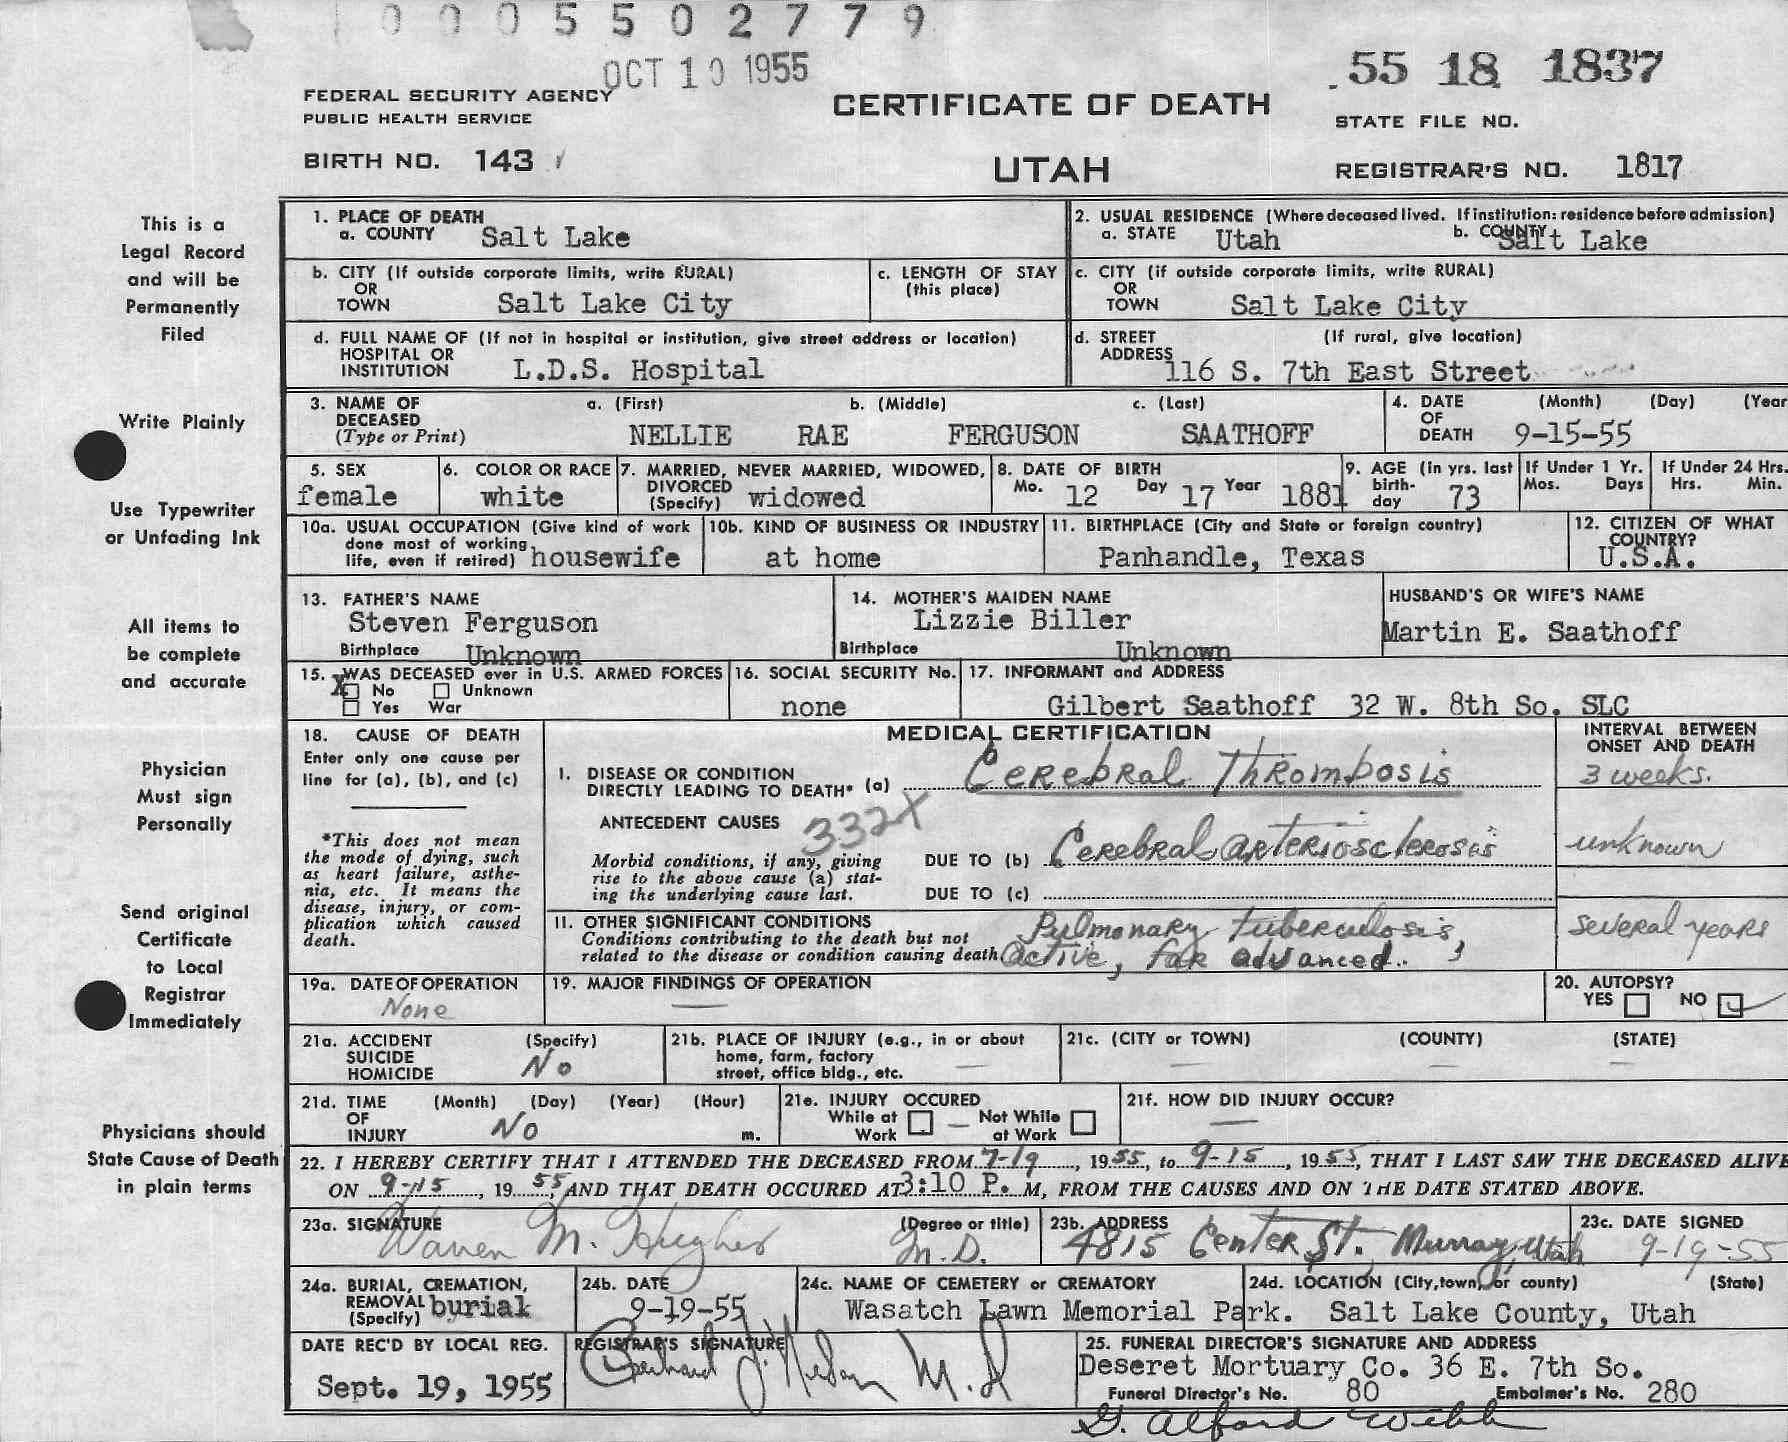 0005502779
OCT 10 1955
55 18 1837
FEDERAL SECURITY AGENCY
PUBLIC HEALTH SERVICE
CERTIFICATE OF DEATH
STATE FILE NO.
BIRTH NO. 143
UTAH
REGISTRAR'S NO. 1817
This is a
Legal Record
and will be
Permanently
Filed
Write Plainly
Use Typewriter
or Unfading Ink
All items to
be complete
and accurate
Physician
Must sign
Personally
Send original
Certificate
to Local
Registrar
Immediately
Physicians should
State Cause of Death
in plain terms
1. PLACE OF DEATH
a. COUNTY Salt Lake
2. USUAL RESIDENCE (Where deceased lived. If institution: residence before admission)
a. STATE Utah b. COUNTY Salt Lake
b. CITY (If outside corporate limits, write RURAL)
OR
TOWN Salt Lake City
c. LENGTH OF STAY
(this place)
c. CITY (if outside corporate limits, write RURAL)
OR
TOWN Salt Lake City
d. FULL NAME OF (If not in hospital or institution, give street address or location)
HOSPITAL OR
INSTITUTION L.D.S. Hospital
d. STREET (If rural, give location)
ADDRESS 116 S. 7th East Street
3. NAME OF a. (First) b. (Middle) c. (Last)
DECEASED
(Type or Print) NELLIE RAE FERGUSON SAATHOFF
4. DATE (Month) (Day) (Year
OF
DEATH 9-15-55
5. SEX
female
6. COLOR OR RACE
white
7. MARRIED, NEVER MARRIED, WIDOWED,
DIVORCED
(Specify) widowed
8. DATE OF BIRTH
Mo. 12 Day 17 Year 1881
9. AGE (in yrs. last
birth-
day 73
If Under 1 Yr.
Mos. Days
If Under 24 Hrs.
Hrs. Min.
10a. USUAL OCCUPATION (Give kind of work
done most of working
life, even if retired) housewife
10b. KIND OF BUSINESS OR INDUSTRY
at home
11. BIRTHPLACE (City and State or foreign country)
Panhandle, Texas
12. CITIZEN OF WHAT
COUNTRY?
U.S.A.
13. FATHER'S NAME
Steven Ferguson
Birthplace Unknown
14. MOTHER'S MAIDEN NAME
Lizzie Biller
Birthplace Unknown
HUSBAND'S OR WIFE'S NAME
Martin E. Saathoff
15. WAS DECEASED ever in U.S. ARMED FORCES
X No Unknown
Yes War
16. SOCIAL SECURITY No.
none
17. INFORMANT and ADDRESS
Gilbert Saathoff 32 W. 8th So. SLC
18. CAUSE OF DEATH
Enter only one cause per
line for (a), (b), and (c)
*This does not mean
the mode of dying, such
as heart failure, asthe-
nia, etc. It means the
disease, injury, or com-
plication which caused
death.
MEDICAL CERTIFICATION
INTERVAL BETWEEN
ONSET AND DEATH
I. DISEASE OR CONDITION
DIRECTLY LEADING TO DEATH* (a) Cerebral Thrombosis 3 weeks.
ANTECEDENT CAUSES 332X
Morbid conditions, if any, giving
rise to the above cause (a) stat-
ing the underlying cause last.
DUE TO (b) Cerebral arteriosclerosis unknown
DUE TO (c)
II. OTHER SIGNIFICANT CONDITIONS
Conditions contributing to the death but not
related to the disease or condition causing death.
Pulmonary tuberculosis,
active, far advanced.
several years
19a. DATE OF OPERATION
None
19. MAJOR FINDINGS OF OPERATION
—
20. AUTOPSY?
YES NO ✓
21a. ACCIDENT (Specify)
SUICIDE
HOMICIDE No
21b. PLACE OF INJURY (e.g., in or about
home, farm, factory
street, office bldg., etc. —
21c. (CITY OR TOWN) (COUNTY) (STATE)
— — —
21d. TIME (Month) (Day) (Year) (Hour)
OF
INJURY No m.
21e. INJURY OCCURED
While at Work — Not While at Work
21f. HOW DID INJURY OCCUR?
—
22. I HEREBY CERTIFY THAT I ATTENDED THE DECEASED FROM 7-19, 1955, to 9-15, 1955, THAT I LAST SAW THE DECEASED ALIVE
ON 9-15, 1955, AND THAT DEATH OCCURED AT 3:10 P. M, FROM THE CAUSES AND ON THE DATE STATED ABOVE.
23a. SIGNATURE (Degree or title)
Warren M. Hughes M.D.
23b. ADDRESS
4815 Center St. Murray, Utah
23c. DATE SIGNED
9-19-55
24a. BURIAL, CREMATION,
REMOVAL
(Specify) burial
24b. DATE
9-19-55
24c. NAME OF CEMETERY or CREMATORY
Wasatch Lawn Memorial Park.
24d. LOCATION (City, town, or county) (State)
Salt Lake County, Utah
DATE REC'D BY LOCAL REG.
Sept. 19, 1955
REGISTRAR'S SIGNATURE
M.D
25. FUNERAL DIRECTOR'S SIGNATURE AND ADDRESS
Deseret Mortuary Co. 36 E. 7th So.
Funeral Director's No. 80 Embalmer's No. 280
G. Alford Webb